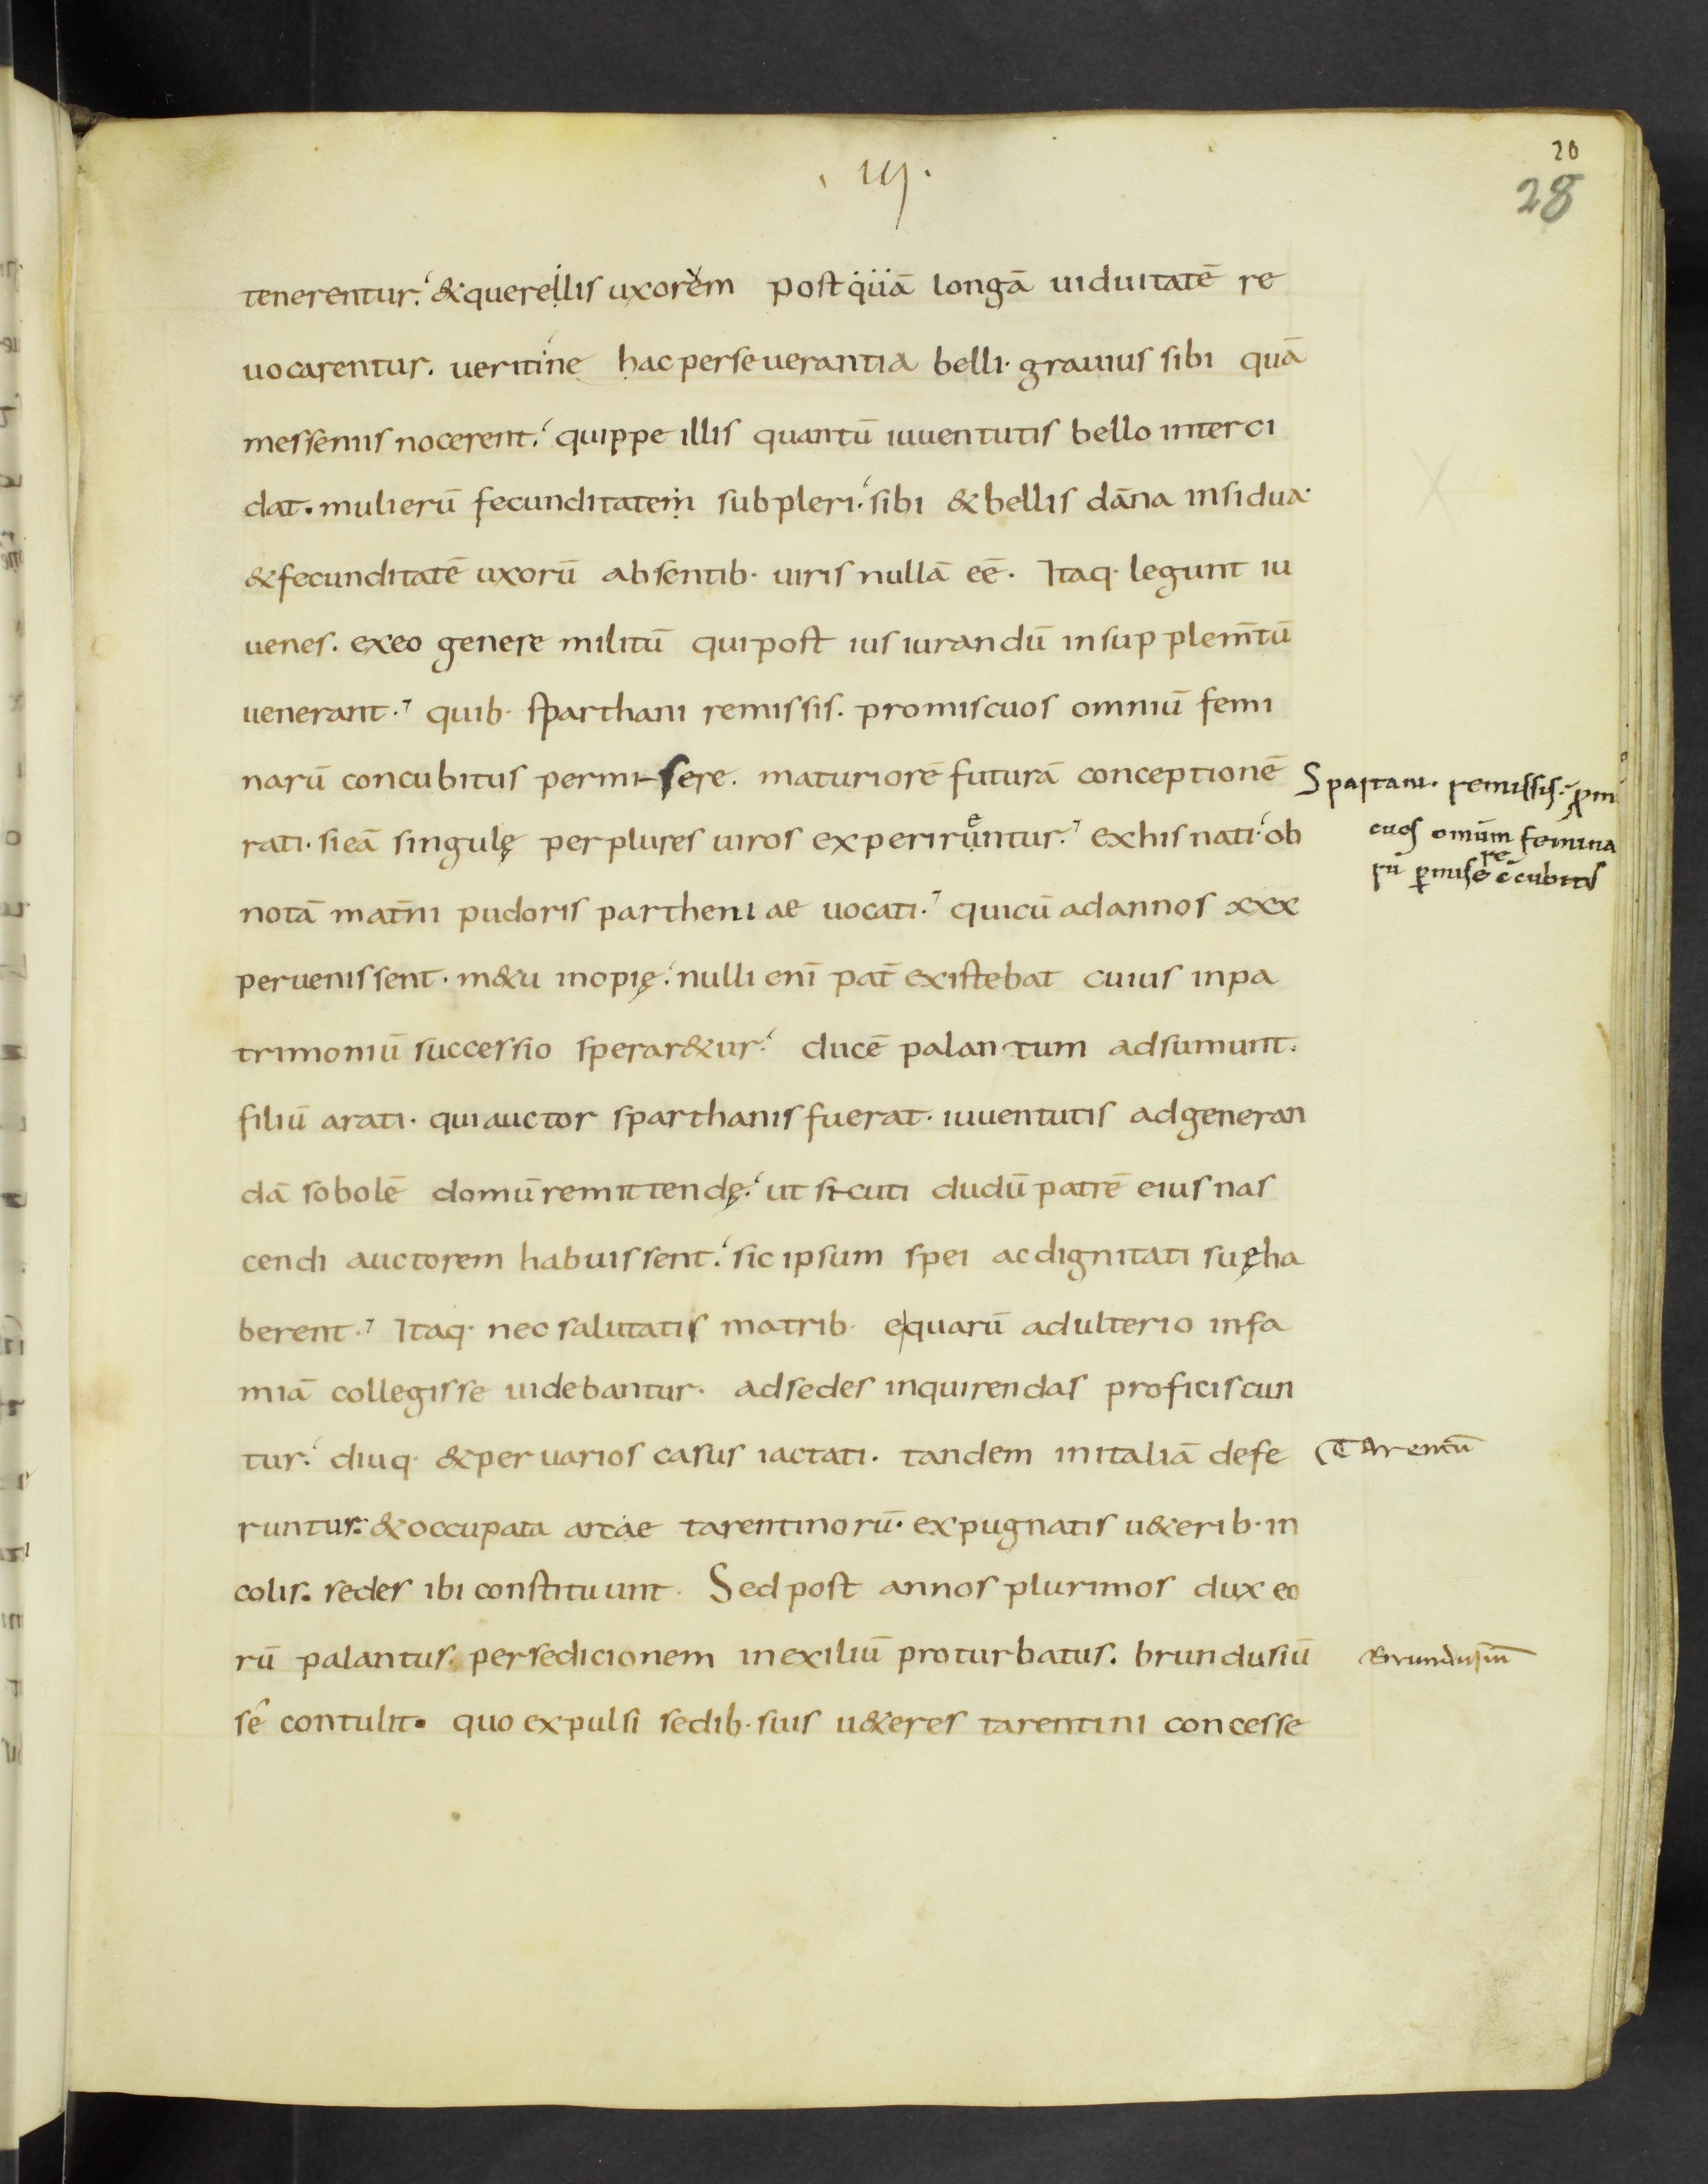 . iij.
20
28
tenerentur. & querellis uxorem postquā longā uiduitatē re
uocarentur. ueriti ne hac perseuerantia belli. grauius sibi quā
messeniis nocerent. quippe illis quantū iuuentutis bello interci
dat. mulierū fecunditatem subpleri. sibi & bellis dāna insidua.
& fecunditatē uxorū absentib. uiris nullā eē. Itaq. legunt iu
uenes. ex eo genere militū qui post ius iurandū in supplem̄tū
uenerant. quib. sparthani remissis. promiscuos omniū femi
narū concubitus permisere. maturiorē futurā conceptionē
rati. si eā singulę per plures uiros experirentur. ex his nati ob
notā mat̄ni pudoris partheniae uocati. qui cū ad annos xxx
peruenissent. m&u inopię. nulli enī pat̄ existebat cuius in pa
trimoniū successio sperar&ur. ducē palantum adsumunt.
filiū arati. qui auctor sparthanis fuerat. iuuentutis ad generan
dā sobolē domū remittendę. ut sicuti dudū patrē eius nas
cendi auctorem habuissent. sic ipsum spei ac dignitati suę ha
berent. Itaq. nec salutatis matrib. e quarū adulterio infa
miā collegisse uidebantur. ad sedes inquirendas proficiscun
tur. diuq. & per uarios casus iactati. tandem in italiā defe
runtur. & occupata arcae tarentinorū. expugnatis u&erib. in
colis. sedes ibi constituunt. Sed post annos plurimos dux eo
rū palantus. per sedicionem in exiliū proturbatus. brundusiū
se contulit. quo expulsi sedib. suis u&eres tarentini concesse
Spartani. remissis.
cuos omīum femina
rū ꝑmisere c̄cubitus
Tarentū
Brundusiū